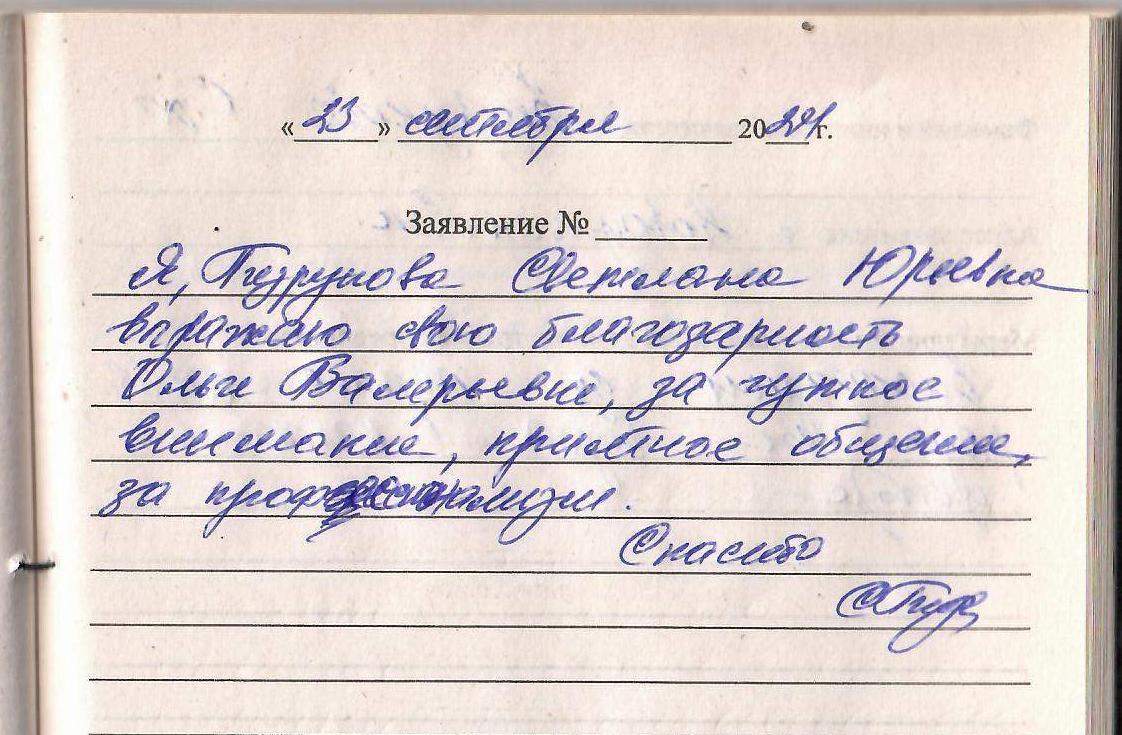 « 23 » сентября 2021 г.
Заявление № ______
Я, Пузрунова Светлана Юрьевна
выражаю свою благодарность
Ольге Валерьевне, за чуткое
внимание, приятное общение,
за профессионализм.
Спасибо